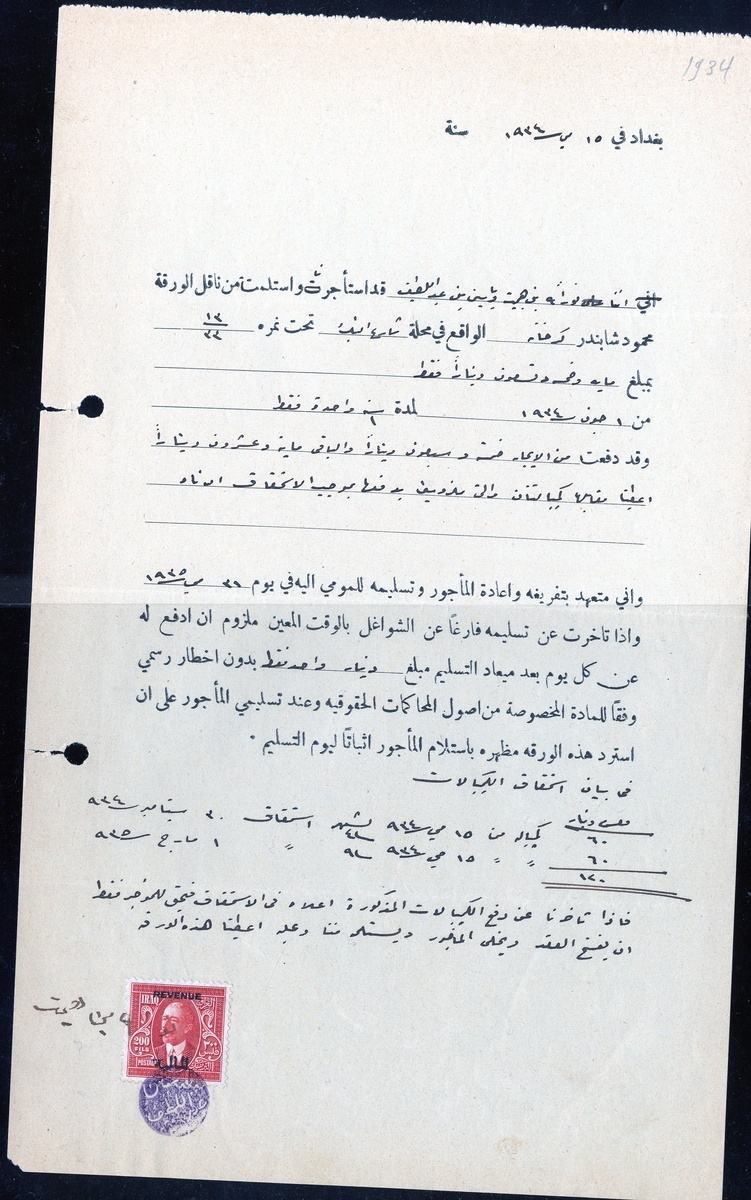 1934
بغداد في ١٥ مي ١٩٣٤ سنة
اني اننا نوراه بن هبة وياسين بن عبد اللطيف قد استأجرت واستلمت من ناقل الورقة
محمود شابندر كرخانه الواقع في محلة شارع تحت نمره ١٣/٢٣
بمبلغ مايه وخمسه وتسعون ديناراً فقط
من ١ جون ١٩٣٤ لمدة سنه واحدة فقط
وقد دفعت من الايجار خمسة وسبعون ديناراً والباقي ماية وعشرون ديناراً
اعطينا مقابلها كمبيالتان والتي ملزومين بدفعها بموجب الاستحقاق ادناه
واني متعهد بتفريغه واعادة المأجور وتسليمه للمومي اليه في يوم ٣١ مي ١٩٣٥
واذا تاخرت عن تسليمه فارغًا عن الشواغل بالوقت المعين ملزوم ان ادفع له
عن كل يوم بعد ميعاد التسليم مبلغ دينار واحد فقط بدون اخطار رسمي
وفقًا للمادة المخصوصة من اصول المحاكمات الحقوقيه وعند تسليمي المأجور على ان
استرد هذه الورقه مظهره باستلام المأجور اثباتًا ليوم التسليم ٠
في بيان استحقاق الكمبيالات
دينار
٦٠ كمبياله من ١٥ مي ٩٣٤ لشهر استحقاق ٣٠ سبتامبر ٩٣٤
٦٠ " " ١٥ مي ٩٣٤ " ١ مارج ٩٣٥
١٢٠
فاذا تاخرنا عن دفع الكمبيالات المذكورة اعلاه في الاستحقاق فيحق للمؤجر فقط
ان يفسخ العقد ويخلي المأجور ويستلمه مننا وعليه اعطينا هذه الورقه
REVENUE
IRAQ
العراق
200
FILS
فلس
POSTAGE
المالية